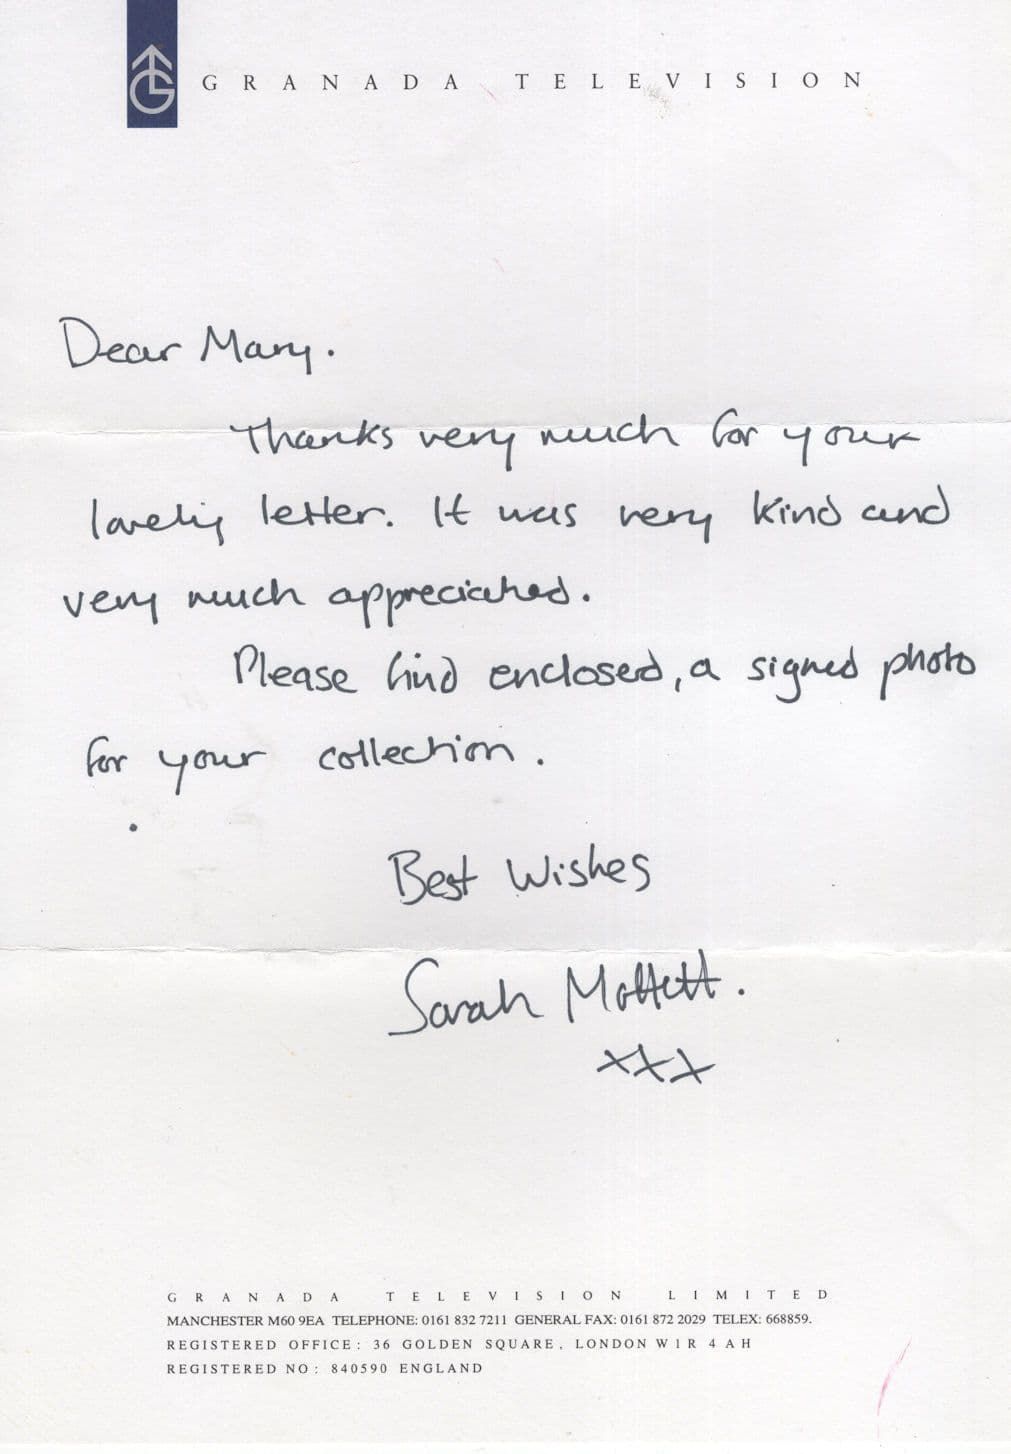 GRANADA TELEVISION
Dear Mary.
Thanks very much for your
lovely letter. It was very kind and
very much appreciated.
Please find enclosed, a signed photo
for your collection.
Best Wishes
Sarah Moffett.
xxx
GRANADA TELEVISION LIMITED
MANCHESTER M60 9EA TELEPHONE: 0161 832 7211 GENERAL FAX: 0161 872 2029 TELEX: 668859.
REGISTERED OFFICE: 36 GOLDEN SQUARE, LONDON W1R 4AH
REGISTERED NO: 840590 ENGLAND